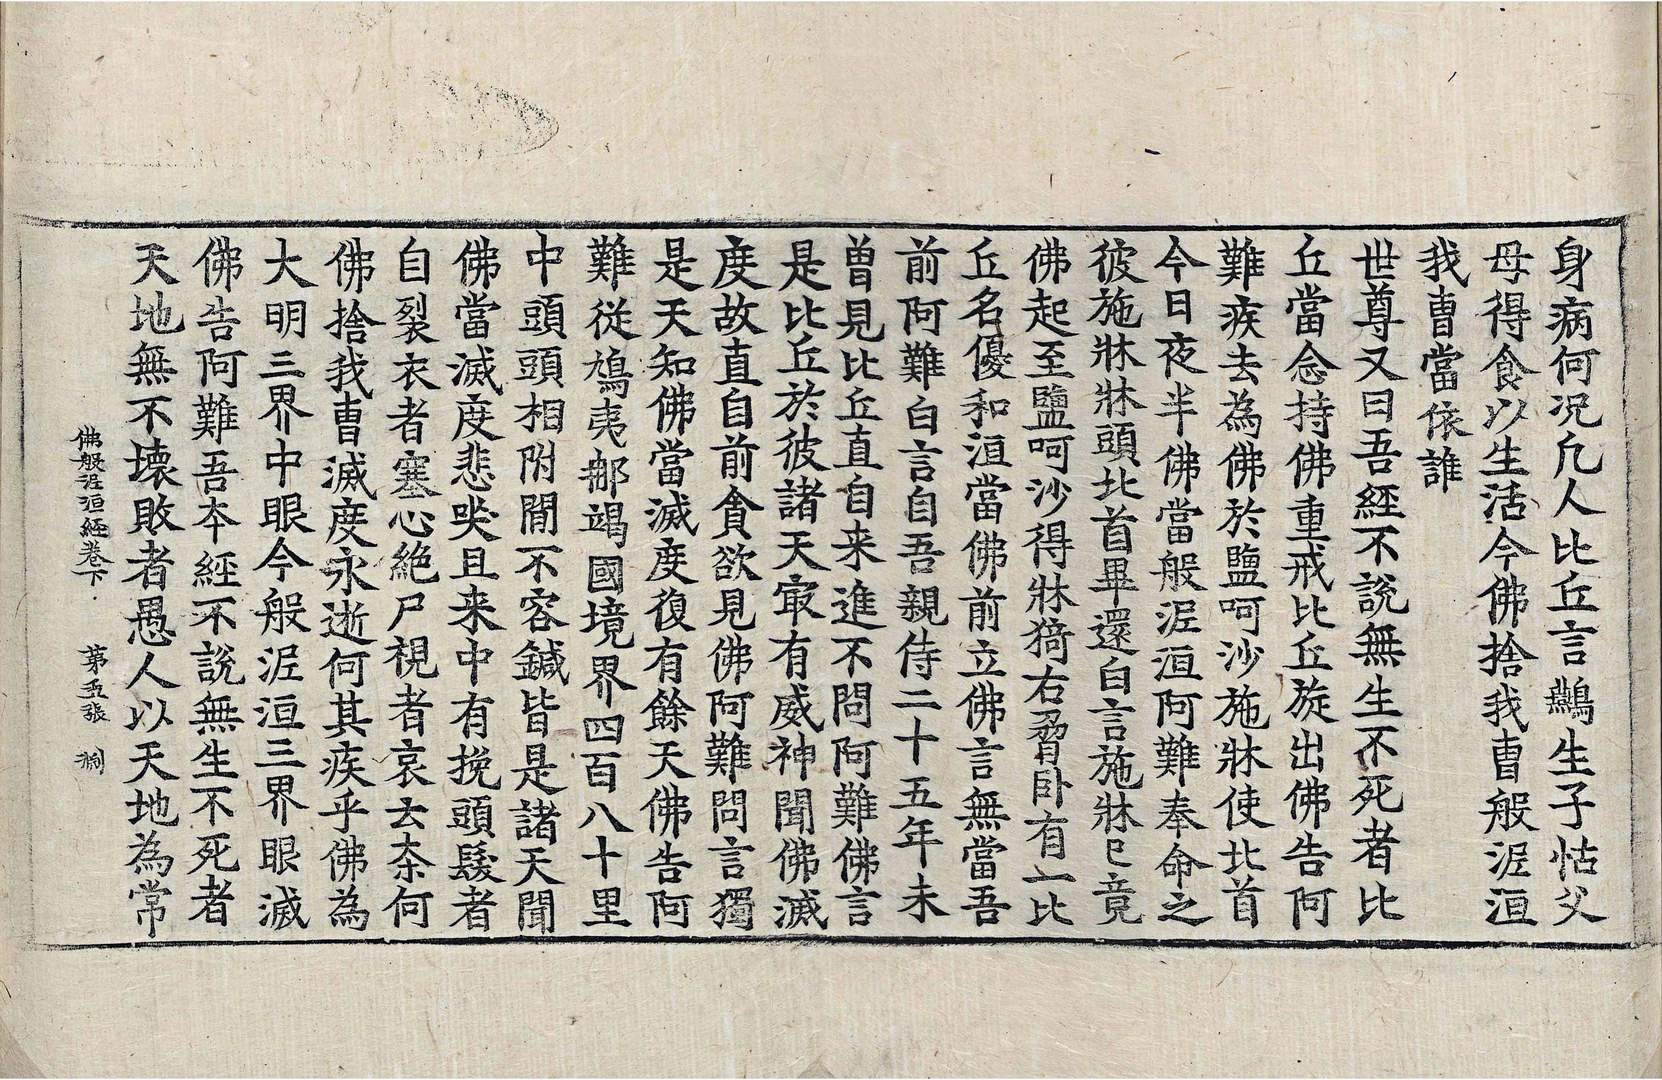 身病何况凡人比丘言鷰生子怙父
母得食以生活今佛捨我曺般泥洹
我曺當依誰
世尊又曰吾經不說無生不死者比
丘當念持佛重戒比丘旋出佛告阿
難疾去為佛於鹽呵沙施牀使北首
今日夜半佛當般泥洹阿難奉命之
彼施牀牀頭北首畢還白言施牀已竟
佛起至鹽呵沙得牀猗右脅卧有一比
丘名優和洹當佛前立佛言無當吾
前阿難白言自吾親侍二十五年未
曽見比丘直自来進不問阿難佛言
是比丘於彼諸天㝡有威神聞佛滅
度故直自前貪欲見佛阿難問言獨
是天知佛當滅度復有餘天佛告阿
難従鳩夷那竭國境界四百八十里
中頭頭相附閒不容鍼皆是諸天聞
佛當滅度悲哭且来中有挽頭髮者
自裂衣者塞心絶尸視者哀云柰何
佛捨我曺滅度永逝何其疾乎佛為
大明三界中眼今般泥洹三界眼滅
佛告阿難吾夲經不說無生不死者
天地無不壊敗者愚人以天地為常
佛般泥洹經卷下 第五張